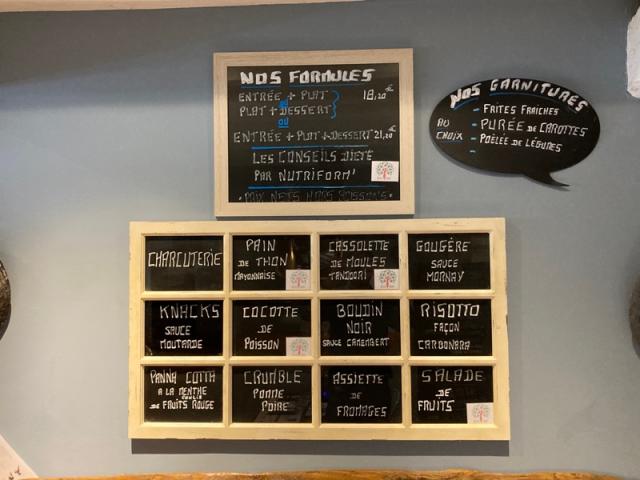 NOS FORMULES
ENTRÉE + PLAT
18,20€
ou
PLAT + DESSERT
ou
ENTRÉE + PLAT + DESSERT 21,20€
LES CONSEILS DIETE
PAR NUTRIFORM'
NOS GARNITURES
AU CHOIX
- FRITES FRAÎCHES
- PURÉE DE CAROTTES
- POÊLÉE DE LÉGUMES
-
CHARCUTERIE
PAIN
DE THON
MAYONNAISE
CASSOLETTE
DE MOULES
TANDOORI
GOUGÈRE
SAUCE
MORNAY
KNACKS
SAUCE
MOUTARDE
COCOTTE
DE
POISSON
BOUDIN
NOIR
SAUCE CAMEMBERT
RISOTTO
FAÇON
CARBONARA
PANNA COTTA
A LA MENTHE
COULIS
DE FRUITS ROUGE
CRUMBLE
POMME
POIRE
ASSIETTE
DE
FROMAGES
SALADE
DE
FRUITS